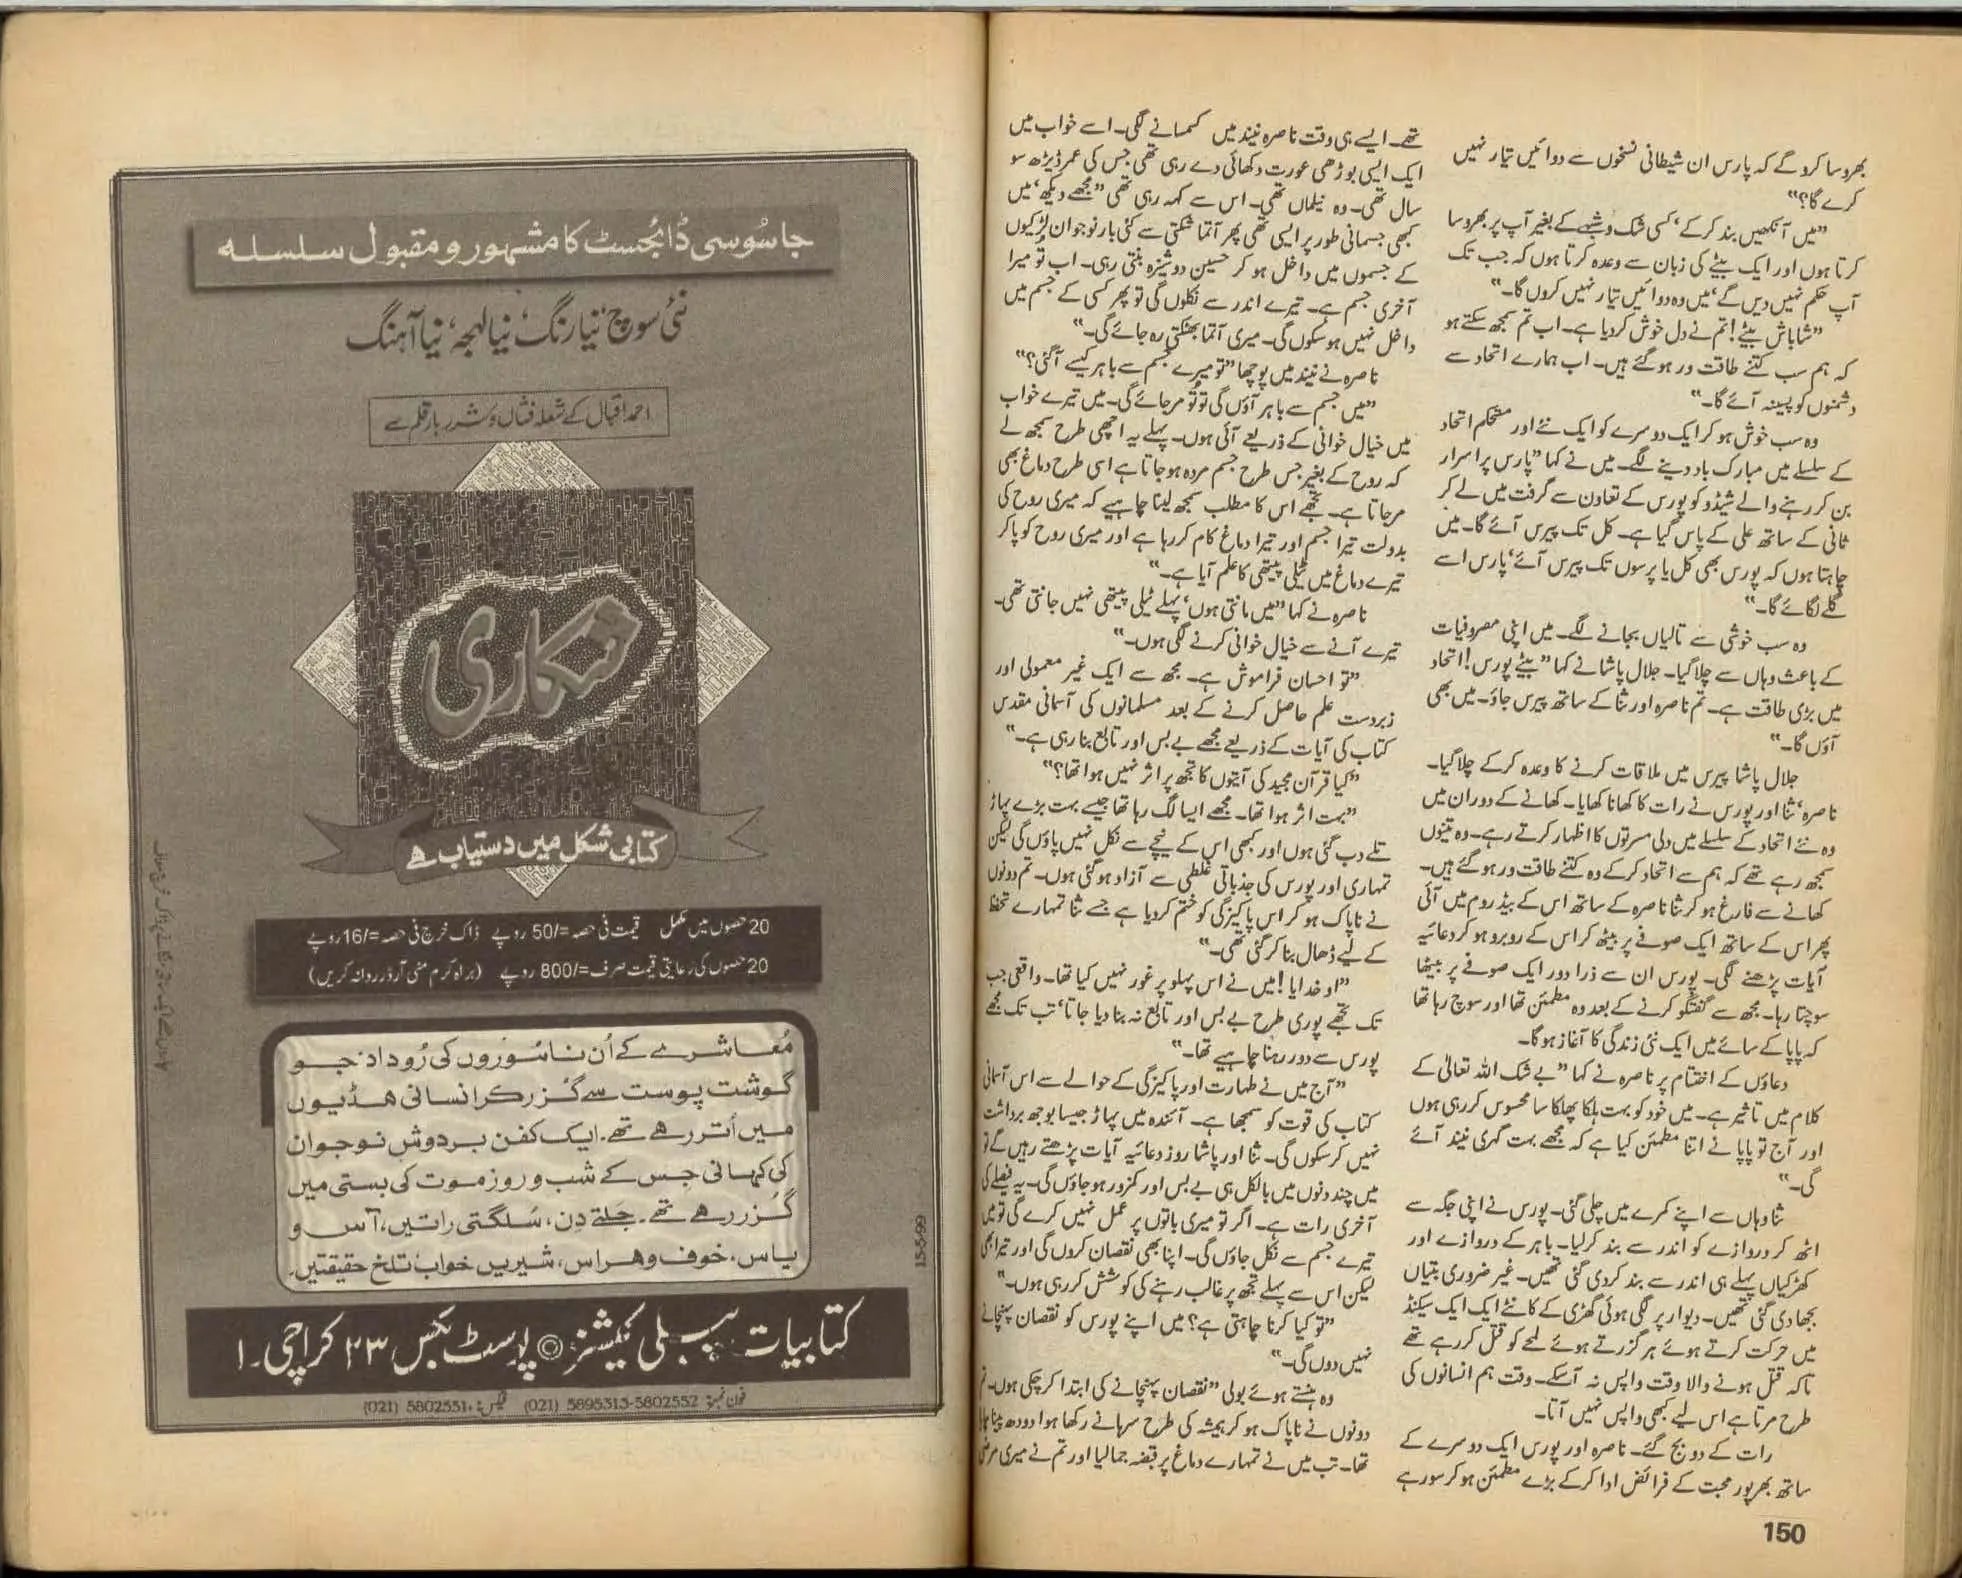 بھروسا کرو گے کہ پارس ان شیطانی نسخوں سے دوائیں تیار نہیں
کرے گا؟"
"میں آنکھیں بند کرکے' کسی شک و شبہے کے بغیر آپ پر بھروسا
کرتا ہوں اور ایک بیٹے کی زبان سے وعدہ کرتا ہوں کہ جب تک
آپ حکم نہیں دیں گے' میں وہ دوائیں تیار نہیں کروں گا۔"
"شاباش بیٹے! تم نے دل خوش کردیا ہے۔ اب تم سمجھ سکتے ہو
کہ ہم سب کتنے طاقت ور ہوگئے ہیں۔ اب ہمارے اتحاد سے
دشمنوں کو پسینہ آئے گا۔"
وہ سب خوش ہوکر ایک دوسرے کو ایک نئے اور مستحکم اتحاد
کے سلسلے میں مبارک باد دینے لگے۔ میں نے کہا "پارس پراسرار
بن کر رہنے والے شیڈو کو پورس کے تعاون سے گرفت میں لے کر
ثانی کے ساتھ علی کے پاس گیا ہے۔ کل تک پیرس آئے گا۔ میں
چاہتا ہوں کہ پورس بھی کل یا پرسوں تک پیرس آئے' پارس اسے
گلے لگائے گا۔"
وہ سب خوشی سے تالیاں بجانے لگے۔ میں اپنی مصروفیات
کے باعث وہاں سے چلا گیا۔ جلال پاشا نے کہا "بیٹے پورس! اتحاد
میں بڑی طاقت ہے۔ تم ناصرہ اور ثنا کے ساتھ پیرس جاؤ۔ میں بھی
آؤں گا۔"
جلال پاشا پیرس میں ملاقات کرنے کا وعدہ کرکے چلا گیا۔
ناصرہ' ثنا اور پورس نے رات کا کھانا کھایا۔ کھانے کے دوران میں
وہ نئے اتحاد کے سلسلے میں دلی مسرتوں کا اظہار کرتے رہے۔ وہ تینوں
سمجھ رہے تھے کہ ہم سے اتحاد کرکے وہ کتنے طاقت ور ہوگئے ہیں۔
کھانے سے فارغ ہوکر ثنا ناصرہ کے ساتھ اس کے بیڈ روم میں آئی
پھر اس کے ساتھ ایک صوفے پر بیٹھ کر اس کے روبرو ہوکر دعائیہ
آیات پڑھنے لگی۔ پورس ان سے ذرا دور ایک صوفے پر بیٹھا
سوچتا رہا۔ مجھ سے گفتگو کرنے کے بعد وہ مطمئن تھا اور سوچ رہا تھا
کہ پاپا کے سائے میں ایک نئی زندگی کا آغاز ہوگا۔
دعاؤں کے اختتام پر ناصرہ نے کہا "بے شک اللہ تعالیٰ کے
کلام میں تاثیر ہے۔ میں خود کو بہت ہلکا پھلکا سا محسوس کررہی ہوں
اور آج تو پاپا نے اتنا مطمئن کیا ہے کہ مجھے بہت گہری نیند آئے
گی۔"
ثنا وہاں سے اپنے کمرے میں چلی گئی۔ پورس نے اپنی جگہ سے
اٹھ کر دروازے کو اندر سے بند کرلیا۔ باہر کے دروازے اور
کھڑکیاں پہلے ہی اندر سے بند کردی گئی تھیں۔ غیر ضروری بتیاں
بجھا دی گئی تھیں۔ دیوار پر لگی ہوئی گھڑی کے کانٹے ایک ایک سیکنڈ
میں حرکت کرتے ہوئے ہر گزرتے ہوئے لمحے کو قتل کررہے تھے
تاکہ قتل ہونے والا وقت واپس نہ آسکے۔ وقت ہم انسانوں کی
طرح مرتا ہے اس لیے کبھی واپس نہیں آتا۔
رات کے دو بج گئے۔ ناصرہ اور پورس ایک دوسرے کے
ساتھ بھرپور محبت کے فرائض ادا کرکے بڑے مطمئن ہوکر سو رہے
تھے۔ ایسے ہی وقت ناصرہ نیند میں کسمسانے لگی۔ اسے خواب میں
ایک ایسی بوڑھی عورت دکھائی دے رہی تھی جس کی عمر ڈیڑھ سو
سال تھی۔ وہ نیلماں تھی۔ اس سے کہہ رہی تھی "مجھے دیکھ' میں
کبھی جسمانی طور پر ایسی تھی پھر آتما شکتی سے کئی بار نوجوان لڑکیوں
کے جسموں میں داخل ہوکر حسین دوشیزہ بنتی رہی۔ اب تُو میرا
آخری جسم ہے۔ تیرے اندر سے نکلوں گی تو پھر کسی کے جسم میں
داخل نہیں ہوسکوں گی۔ میری آتما بھٹکتی رہ جائے گی۔"
ناصرہ نے نیند میں پوچھا "تو میرے جسم سے باہر کیسے آگئی؟"
"میں جسم سے باہر آؤں گی تو تُو مرجائے گی۔ میں تیرے خواب
میں خیال خوانی کے ذریعے آئی ہوں۔ پہلے یہ اچھی طرح سمجھ لے
کہ روح کے بغیر جس طرح جسم مردہ ہوجاتا ہے اسی طرح دماغ بھی
مرجاتا ہے۔ تجھے اس کا مطلب سمجھ لینا چاہیے کہ میری روح کی
بدولت تیرا جسم اور تیرا دماغ کام کررہا ہے اور میری روح کو پاکر
تیرے دماغ میں ٹیلی پیتھی کا علم آیا ہے۔"
ناصرہ نے کہا "میں مانتی ہوں' پہلے ٹیلی پیتھی نہیں جانتی تھی۔
تیرے آنے سے خیال خوانی کرنے لگی ہوں۔"
"تو احسان فراموش ہے۔ مجھ سے ایک غیر معمولی اور
زبردست علم حاصل کرنے کے بعد مسلمانوں کی آسمانی مقدس
کتاب کی آیات کے ذریعے مجھے بے بس اور تابع بنا رہی ہے۔"
"کیا قرآن مجید کی آیتوں کا تجھ پر اثر نہیں ہوا تھا؟"
"بہت اثر ہوا تھا۔ مجھے ایسا لگ رہا تھا جیسے بہت بڑے پہاڑ
تلے دب گئی ہوں اور کبھی اس کے نیچے سے نکل نہیں پاؤں گی لیکن
تمہاری اور پورس کی جذباتی غلطی سے آزاد ہوگئی ہوں۔ تم دونوں
نے ناپاک ہوکر اس پاکیزگی کو ختم کردیا ہے جسے ثنا تمہارے تحفظ
کے لیے ڈھال بنا کر گئی تھی۔"
"او خدایا! میں نے اس پہلو پر غور نہیں کیا تھا۔ واقعی جب
تک تجھے پوری طرح بے بس اور تابع نہ بنا دیا جاتا' تب تک مجھے
پورس سے دور رہنا چاہیے تھا۔"
"آج میں نے طہارت اور پاکیزگی کے حوالے سے اس آسمانی
کتاب کی قوت کو سمجھا ہے۔ آئندہ میں پہاڑ جیسا بوجھ برداشت
نہیں کرسکوں گی۔ ثنا اور پاشا روز دعائیہ آیات پڑھتے رہیں گے تو
میں چند دنوں میں بالکل ہی بے بس اور کمزور ہوجاؤں گی۔ یہ فیصلے کی
آخری رات ہے۔ اگر تو میری باتوں پر عمل نہیں کرے گی تو میں
تیرے جسم سے نکل جاؤں گی۔ اپنا بھی نقصان کروں گی اور تیرا بھی
لیکن اس سے پہلے تجھ پر غالب رہنے کی کوشش کررہی ہوں۔"
"تو کیا کرنا چاہتی ہے؟ میں اپنے پورس کو نقصان پہنچانے
نہیں دوں گی۔"
وہ ہنستے ہوئے بولی "نقصان پہنچانے کی ابتدا کرچکی ہوں۔ تم
دونوں نے ناپاک ہوکر ہمیشہ کی طرح سرہانے رکھا ہوا دودھ پینا چاہا
تھا۔ تب میں نے تمہارے دماغ پر قبضہ جمالیا اور تم نے میری مرضی
150
جاسُوسی ڈائجسٹ کا مشہور و مقبول سلسلہ
نئی سوچ' نیا رنگ' نیا لہجہ' نیا آہنگ
احمد اقبال کے شعلہ فشاں و شرر بار قلم سے
شکاری
کتابی شکل میں دستیاب ہے
20 حصوں میں مکمل قیمت فی حصہ =/50 روپے ڈاک خرچ فی حصہ =/16 روپے
20 حصوں کی رعایتی قیمت صرف =/800 روپے (براہ کرم منی آرڈر روانہ کریں)
مُعاشرے کے اُن ناسُوروں کی رُوداد جو
گوشت پوست سے گُزر کر انسانی ہڈیوں
میں اُتر رہے تھے۔ ایک کفن بردوش نوجوان
کی کہانی جس کے شب و روز موت کی بستی میں
گُزر رہے تھے۔ جلتے دِن، سُلگتی راتیں، آس و
یاس، خوف و ہراس، شیریں خواب تلخ حقیقتیں۔
کتابیات پبلی کیشنز © پوسٹ بکس ۲۳ کراچی۔۱
فون نمبرز: 5802552-5895313 (021) فیکس: 5802551 (021)
15-5-99